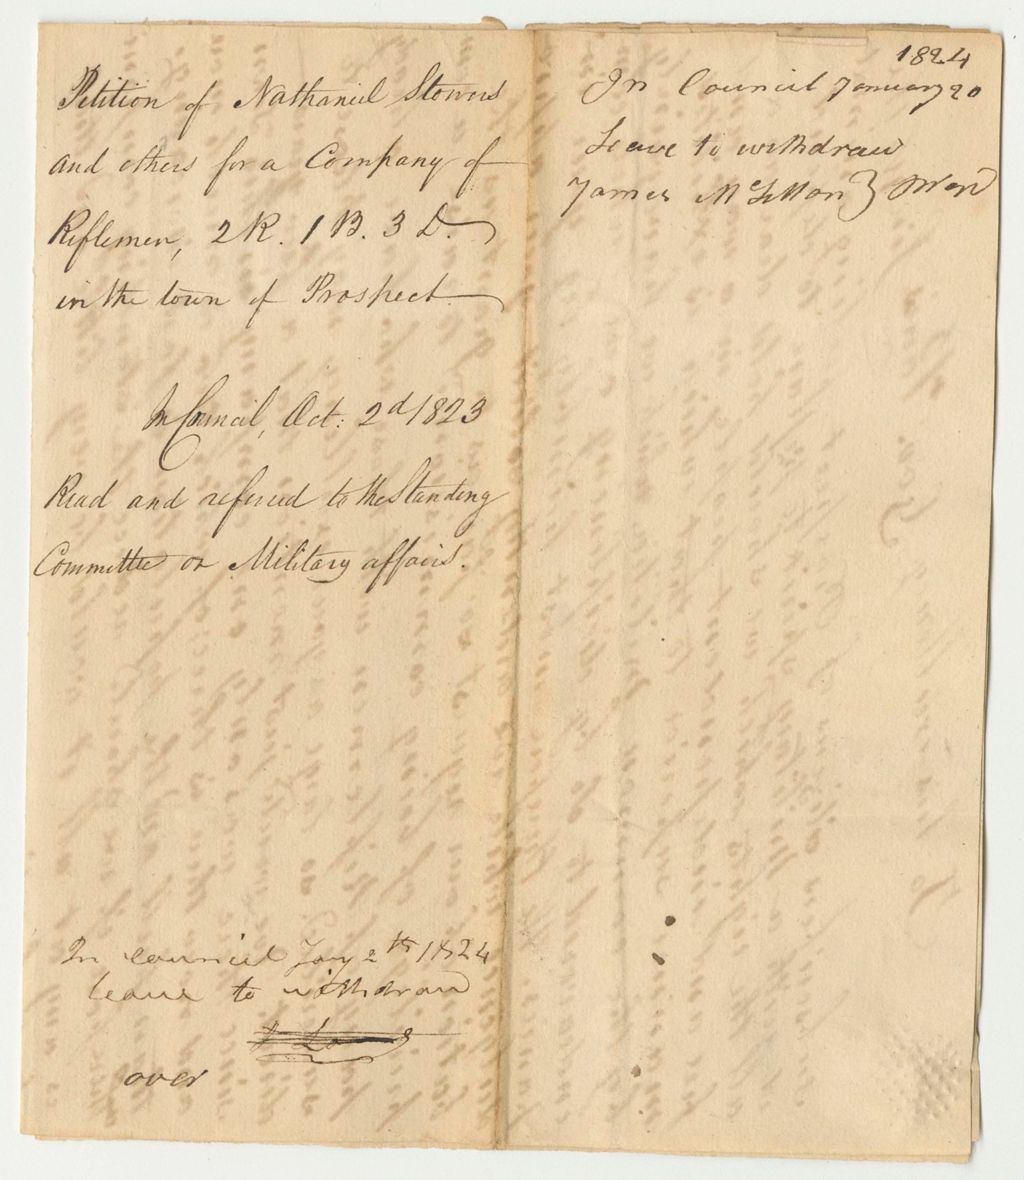 Petition of Nathaniel Stowers
and others for a Company of
Riflemen, 2 R. 1 B. 3 D.
in the town of Prospect.
In Council, Oct: 2d 1823
Read and referred to the Standing
Committee on Military affairs.
In council Jany 2th 1824
leave to withdraw
over
1824
In Council January 20
Leave to withdraw
James